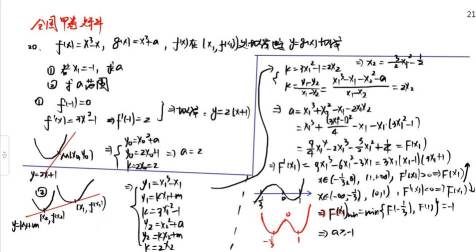 全国甲卷文科
21
20. f(x)=x³-x, g(x)=x²+a, f(x)在(x₁, f(x₁))切线也是y=g(x)切线
① 若x₁=-1, 求a
② 求a范围
① f(-1)=0
f'(x)=3x²-1 ⇒ f'(-1)=2
⇒ 切线: y=2(x+1)
M(x₀,y₀)
y=2x+1
⇒ { y₀=x₀²+a
y₀=2x₀+1
k=2x₀=2
⇒ a=2
②
y=kx+m
(x₁,f(x₁))
⇒ { y₁=x₁³-x₁
y₁=kx₁+m
k=3x₁²-1
y₂=x₂²+a
y₂=kx₂+m
k=2x₂
{ k=3x₁²-1=2x₂ ⇒ x₂=3/2x₁²-1/2
k=(y₁-y₂)/(x₁-x₂)=(x₁³-x₁-x₂²-a)/(x₁-x₂)=2x₂
⇒ a=x₁³+x₂²-x₁-2x₁x₂
=x₁³+(3x₁²-1)²/4-x₁-x₁(3x₁²-1)
=9/4x₁⁴-2x₁³-3/2x₁²+1/4=F(x₁)
⇒ F'(x₁)=9x₁³-6x₁²-3x₁=3x₁(x₁-1)(3x₁+1)
x∈(-1/3,0), (1,+∞), F'(x₁)>0 ⇒ F(x₁)↑
x∈(-∞,-1/3), (0,1), F'(x₁)<0 ⇒ F(x₁)↓
⇒ F(x₁)min=min{F(-1/3), F(1)}=-1
⇒ a≥-1
-1/3 0 1
-1/3 0 1